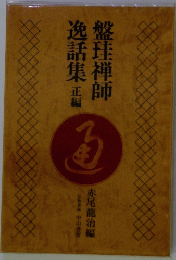 盤珪禅師
逸話集 正編
赤尾龍治編